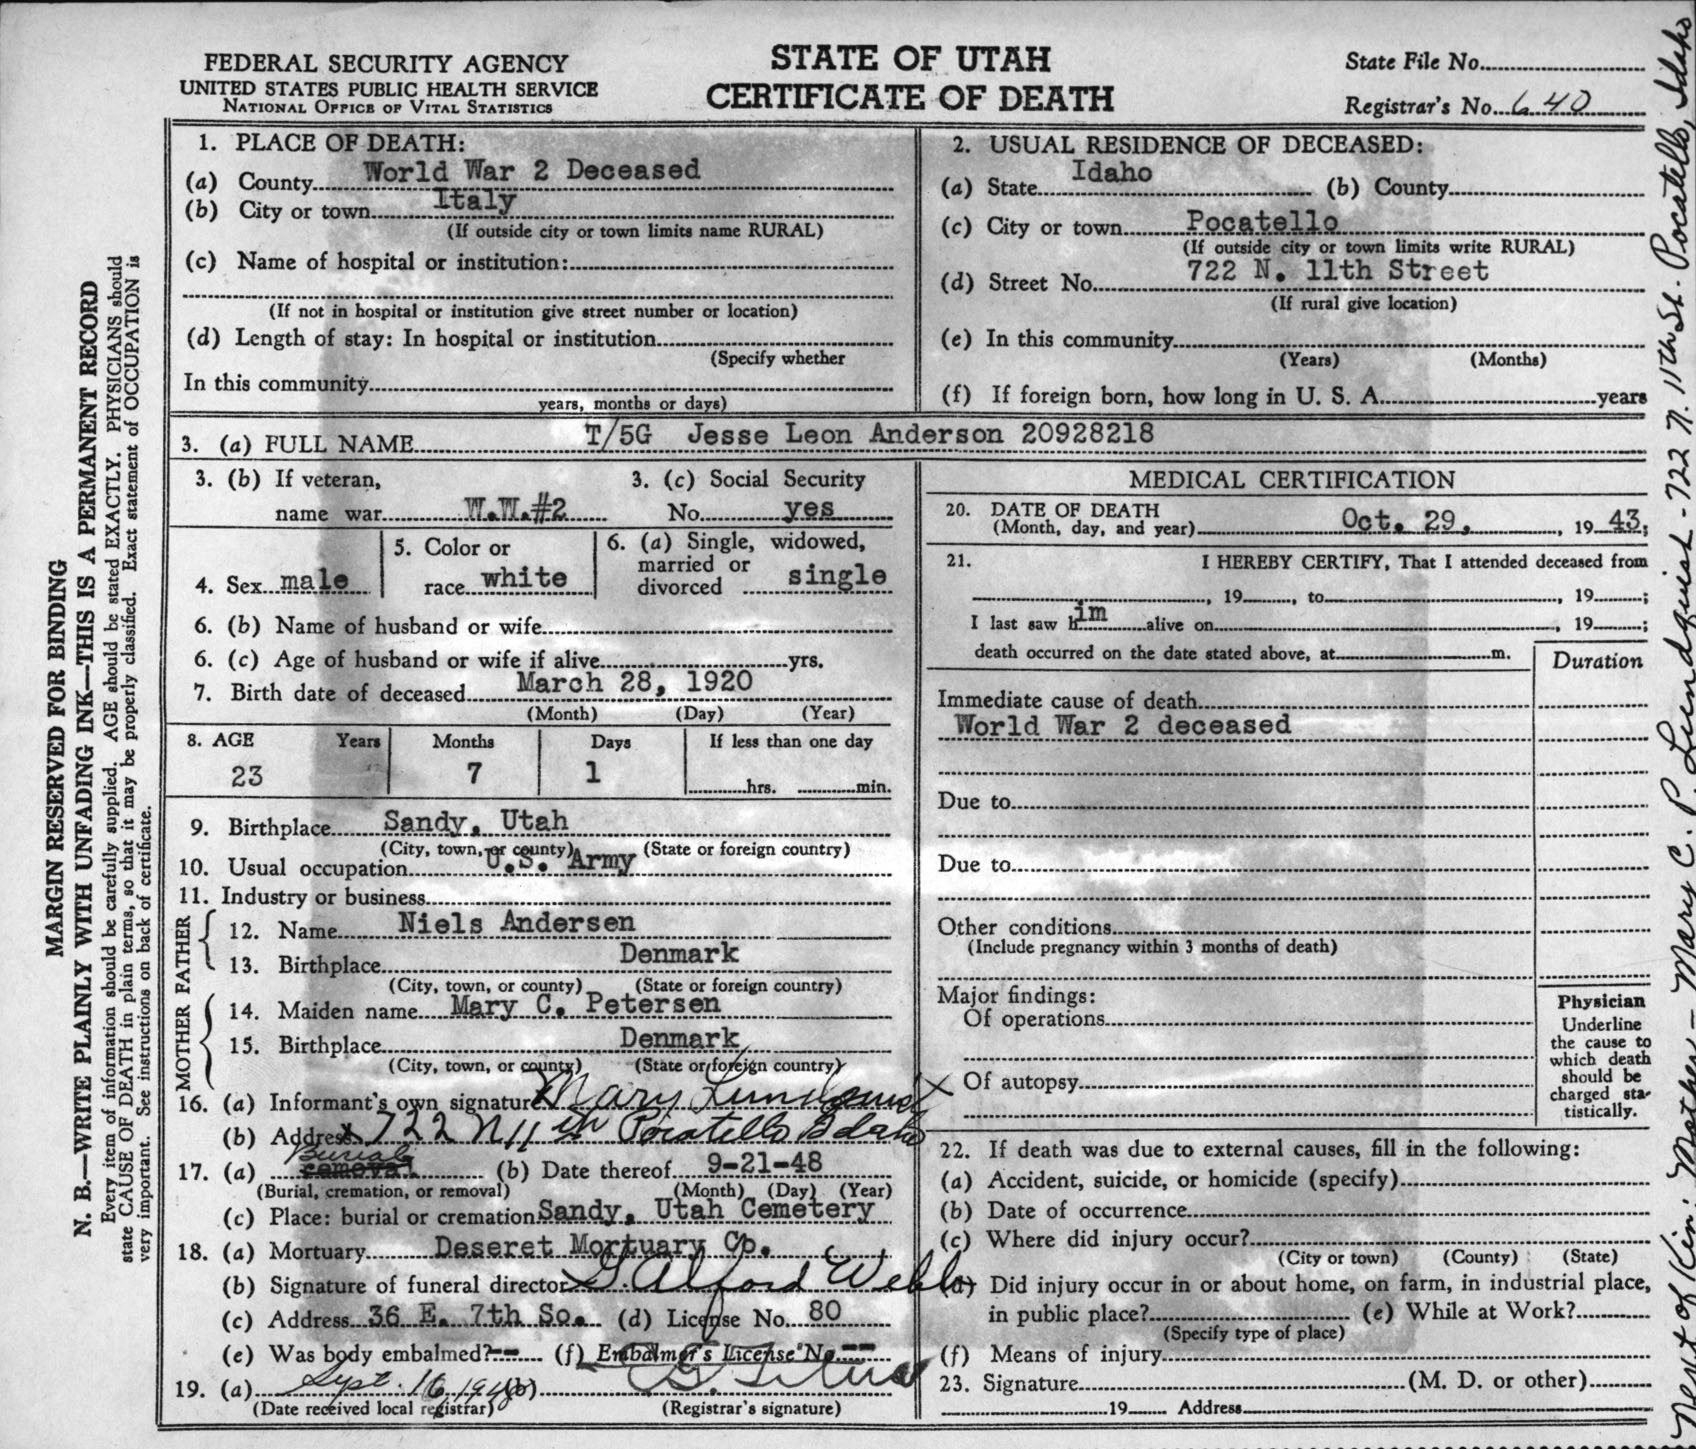 FEDERAL SECURITY AGENCY
UNITED STATES PUBLIC HEALTH SERVICE
NATIONAL OFFICE OF VITAL STATISTICS
STATE OF UTAH
CERTIFICATE OF DEATH
State File No.
Registrar's No. 640
1. PLACE OF DEATH:
(a) County World War 2 Deceased
(b) City or town Italy
(If outside city or town limits name RURAL)
(c) Name of hospital or institution:
(If not in hospital or institution give street number or location)
(d) Length of stay: In hospital or institution
(Specify whether
In this community
years, months or days)
2. USUAL RESIDENCE OF DECEASED:
(a) State Idaho (b) County
(c) City or town Pocatello
(If outside city or town limits write RURAL)
(d) Street No. 722 N. 11th Street
(If rural give location)
(e) In this community
(Years) (Months)
(f) If foreign born, how long in U. S. A. years
3. (a) FULL NAME T/5G Jesse Leon Anderson 20928218
3. (b) If veteran, 3. (c) Social Security
name war W.W.#2 No. yes
4. Sex male
5. Color or
race white
6. (a) Single, widowed,
married or
divorced single
6. (b) Name of husband or wife
6. (c) Age of husband or wife if alive yrs.
7. Birth date of deceased March 28, 1920
(Month) (Day) (Year)
8. AGE Years Months Days If less than one day
23 7 1 hrs. min.
9. Birthplace Sandy, Utah
(City, town, or county) (State or foreign country)
10. Usual occupation U.S. Army
11. Industry or business
FATHER
12. Name Niels Andersen
13. Birthplace Denmark
(City, town, or county) (State or foreign country)
MOTHER
14. Maiden name Mary C. Petersen
15. Birthplace Denmark
(City, town, or county) (State or foreign country)
16. (a) Informant's own signature Mary Lundquist X
(b) Address X 722 N 11th Pocatello Idaho
Burial
17. (a) removal (b) Date thereof 9-21-48
(Burial, cremation, or removal) (Month) (Day) (Year)
(c) Place: burial or cremation Sandy, Utah Cemetery
18. (a) Mortuary Deseret Mortuary Co.
(b) Signature of funeral director G. Alford Webb
(c) Address 36 E. 7th So. (d) License No. 80
(e) Was body embalmed? -- (f) Embalmer's License No. --
19. (a) Sept. 16, 1948 (b)
(Date received local registrar) (Registrar's signature)
MEDICAL CERTIFICATION
20. DATE OF DEATH
(Month, day, and year) Oct. 29, , 19 43;
21. I HEREBY CERTIFY, That I attended deceased from
, 19 , to , 19 ;
I last saw him alive on , 19 ;
death occurred on the date stated above, at m.
Duration
Immediate cause of death
World War 2 deceased
Due to
Due to
Other conditions
(Include pregnancy within 3 months of death)
Major findings:
Of operations
Of autopsy
Physician
Underline
the cause to
which death
should be
charged sta-
tistically.
22. If death was due to external causes, fill in the following:
(a) Accident, suicide, or homicide (specify)
(b) Date of occurrence
(c) Where did injury occur?
(City or town) (County) (State)
(d) Did injury occur in or about home, on farm, in industrial place,
in public place? (e) While at Work?
(Specify type of place)
(f) Means of injury
23. Signature (M. D. or other)
19 Address
MARGIN RESERVED FOR BINDING
N. B.—WRITE PLAINLY WITH UNFADING INK—THIS IS A PERMANENT RECORD
Every item of information should be carefully supplied. AGE should be stated EXACTLY. PHYSICIANS should
state CAUSE OF DEATH in plain terms, so that it may be properly classified. Exact statement of OCCUPATION is
very important. See instructions on back of certificate.
Next of Kin: Mother - Mary C. P. Lundquist - 722 N. 11th St. Pocatello, Idaho